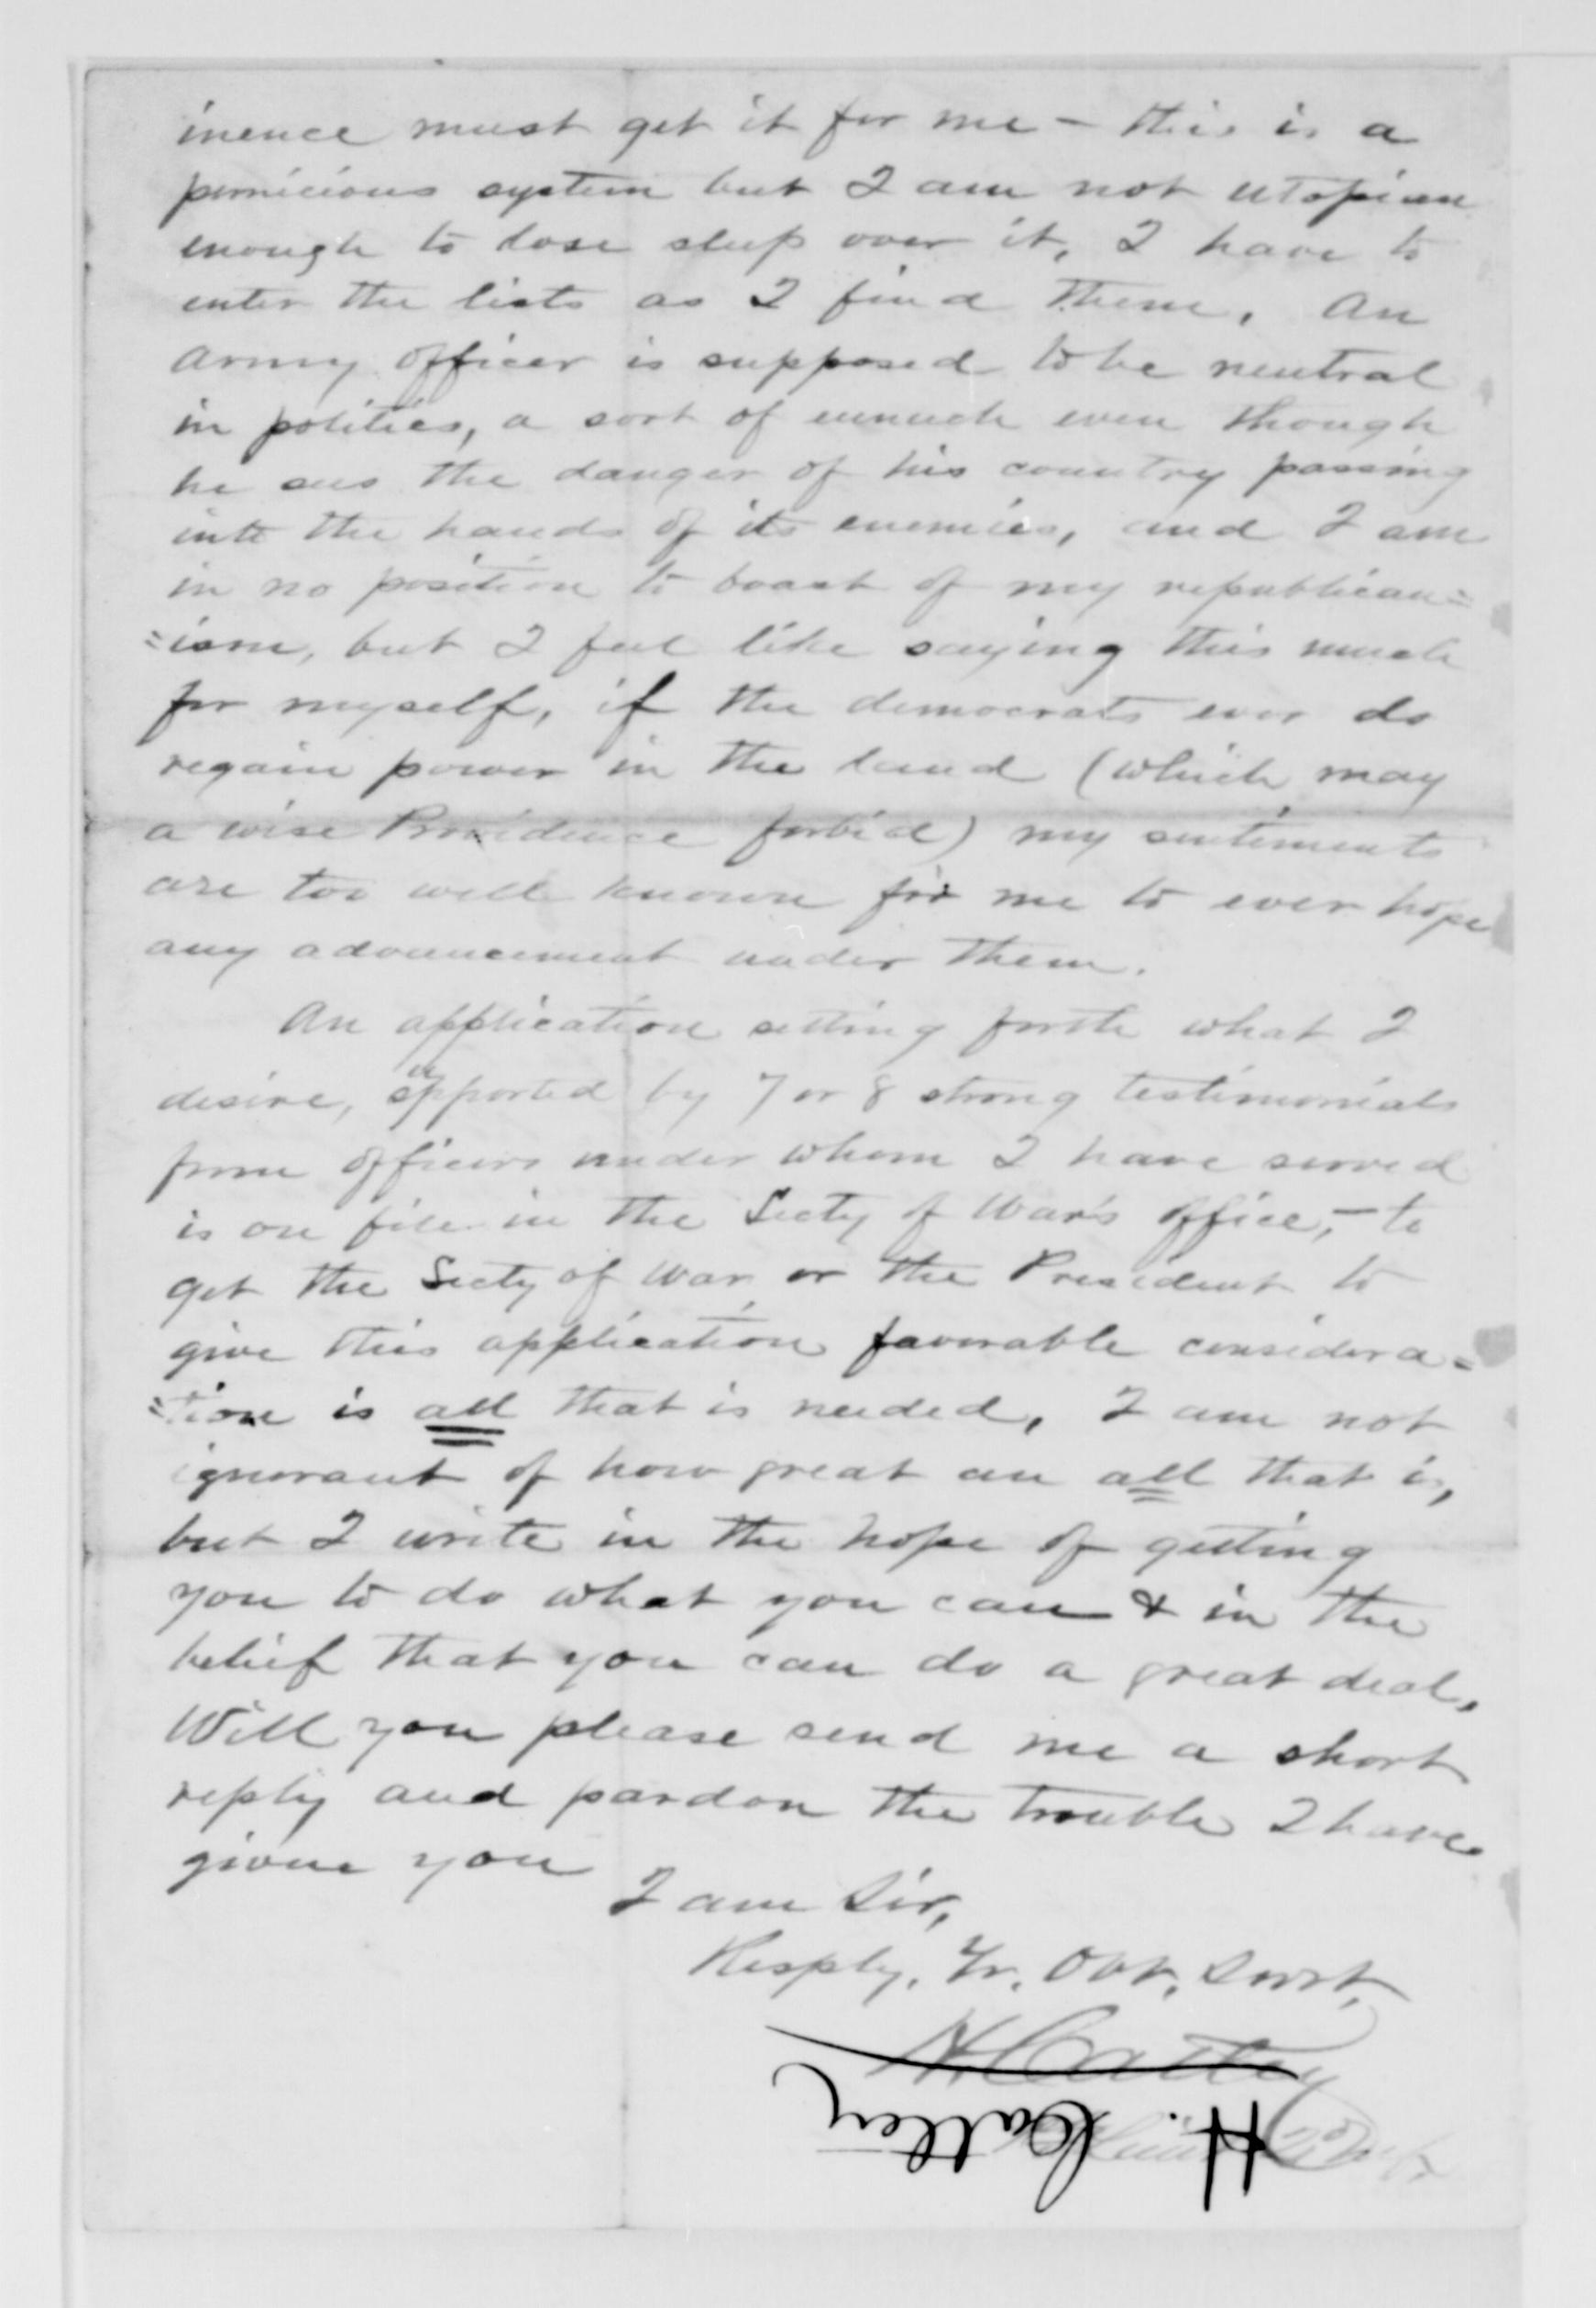 inence must get it for me – this is a
pernicious system but I am not utopian
enough to lose sleep over it, I have to
enter the lists as I find them. An
Army officer is supposed to be neutral
in politics, a sort of eunuch even though
he sees the danger of his country passing
into the hands of its enemies, and I am
in no position to boast of my republican=
=ism, but I feel like saying this much
for myself, if the democrats ever do
regain power in the land (which may
a wise Providence forbid) my sentiments
are too well known for me to ever hope
any advancement under them.
An application setting forth what I
desire, supported by 7 or 8 strong testimonials
from officers under whom I have served
is on file in the Secty of War's office, – to
get the Secty of War or the President to
give this application favorable considera=
=tion is all that is needed, I am not
ignorant of how great an all that is,
but I write in the hope of getting
you to do what you can & in the
belief that you can do a great deal.
Will you please send me a short
reply and pardon the trouble I have
given you
I am Sir,
Resply, Yr. Obt. Servt.
H. Catley